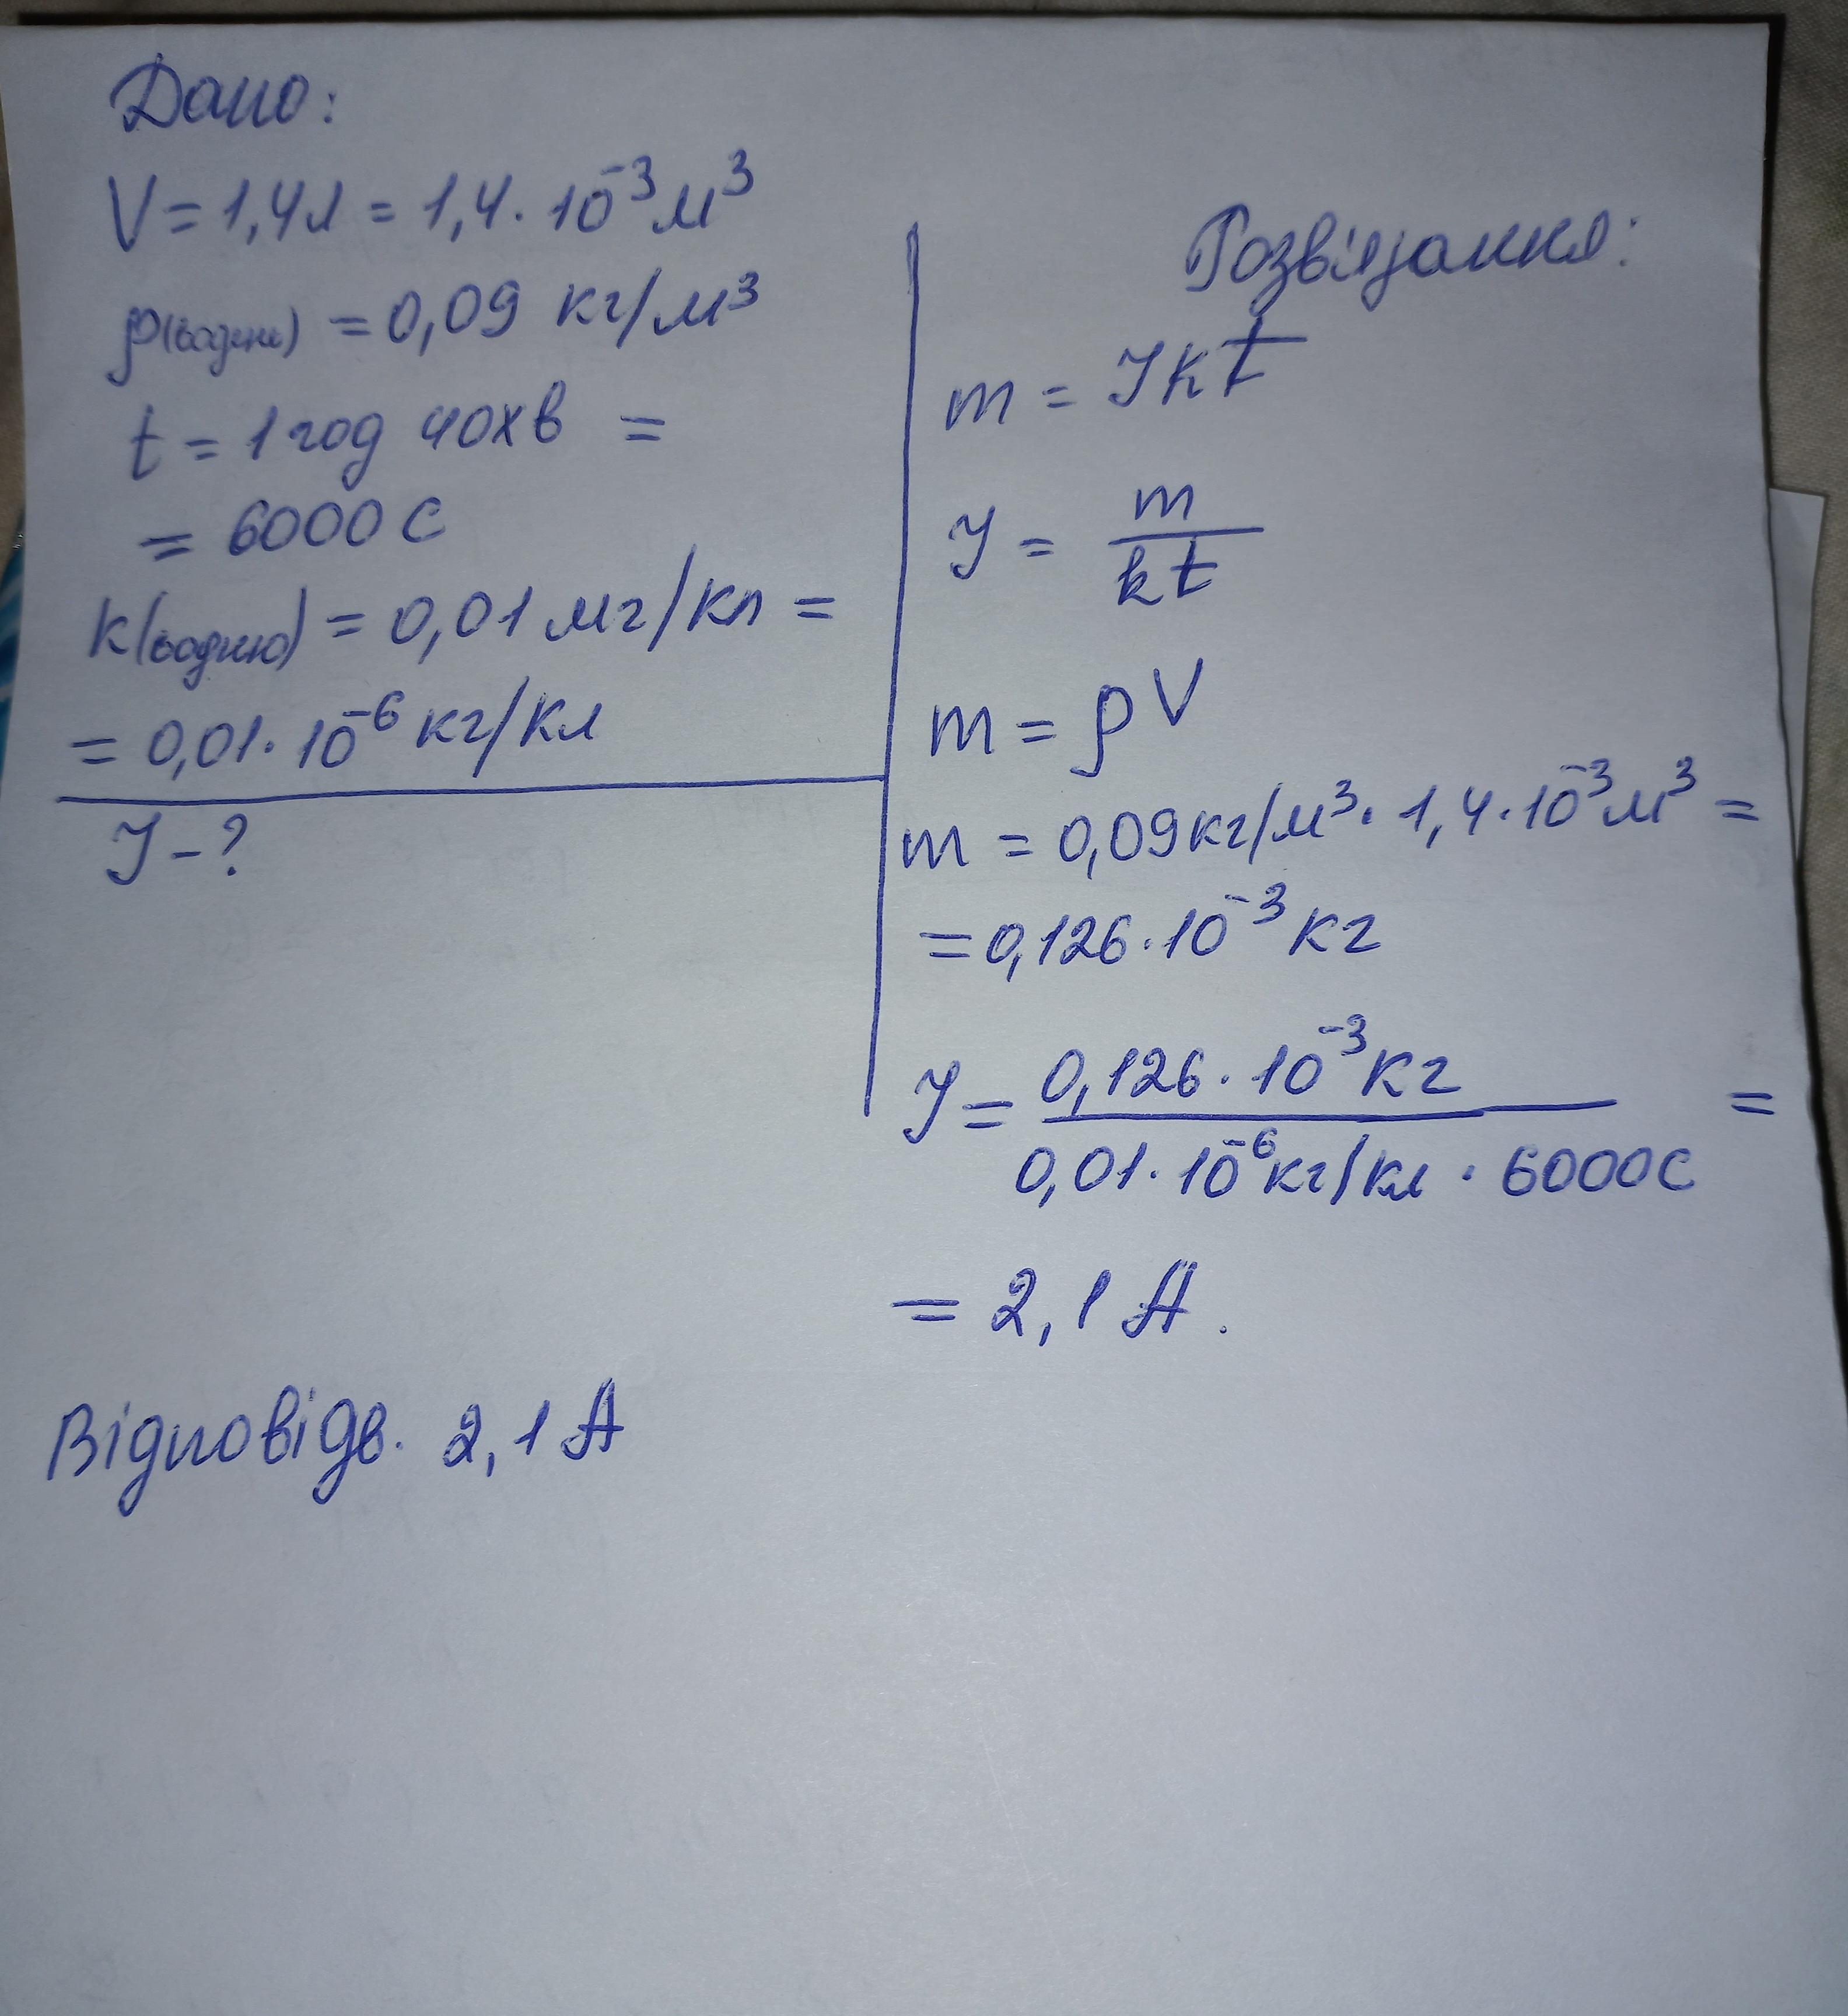 Дано:
V = 1,4л = 1,4 · 10⁻³ м³
ρ(водню) = 0,09 кг/м³
t = 1 год 40хв =
= 6000 с
k(водню) = 0,01 мг/Кл =
= 0,01 · 10⁻⁶ кг/Кл
I - ?
Розв'язання:
m = Ikt
I = m / kt
m = ρV
m = 0,09 кг/м³ · 1,4 · 10⁻³ м³ =
= 0,126 · 10⁻³ кг
I = 0,126 · 10⁻³ кг / 0,01 · 10⁻⁶ кг/Кл · 6000с =
= 2,1 А.
Відповідь. 2,1 А